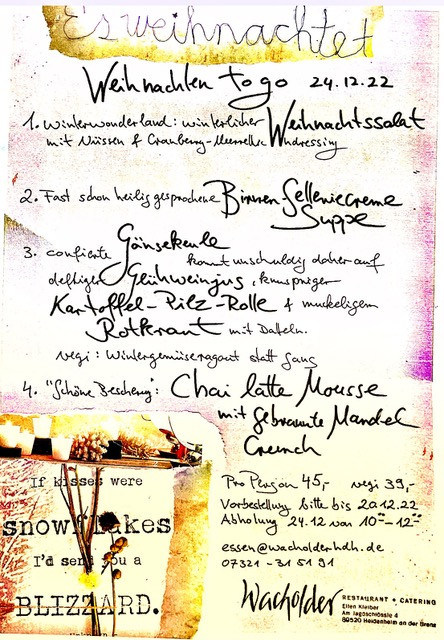 Es weihnachtet
Weihnachten to go 24.12.22
1. Winterwonderland: winterlicher Weihnachtssalat
mit Nüssen & Cranberry-
2. Fast schon heilig gesprochene Birnen Selleriecreme
Suppe
3. confierte Gänsekeule
kommt unschuldig daher auf
deftigen Glühweinjus, knuspriger
Kartoffel-Pilz-Rolle & muckeligem
Rotkraut mit Datteln.
vegi: Wintergemüseragout statt Gans
4. "Schöne Bescherung": Chai latte Mousse
mit gebrannte Mandel
Crunch
If kisses were
snowflakes
I'd send you a
BLIZZARD.
Pro Person 45,- vegi 39,-
Vorbestellung bitte bis 20.12.22
Abholung 24.12 von 10°°-12°°
essen@wacholderhdh.de
07321 - 31 51 91
Wacholder RESTAURANT + CATERING
Ellen Kleiber
Am Jagdschlössle 4
89520 Heidenheim an der Brenz